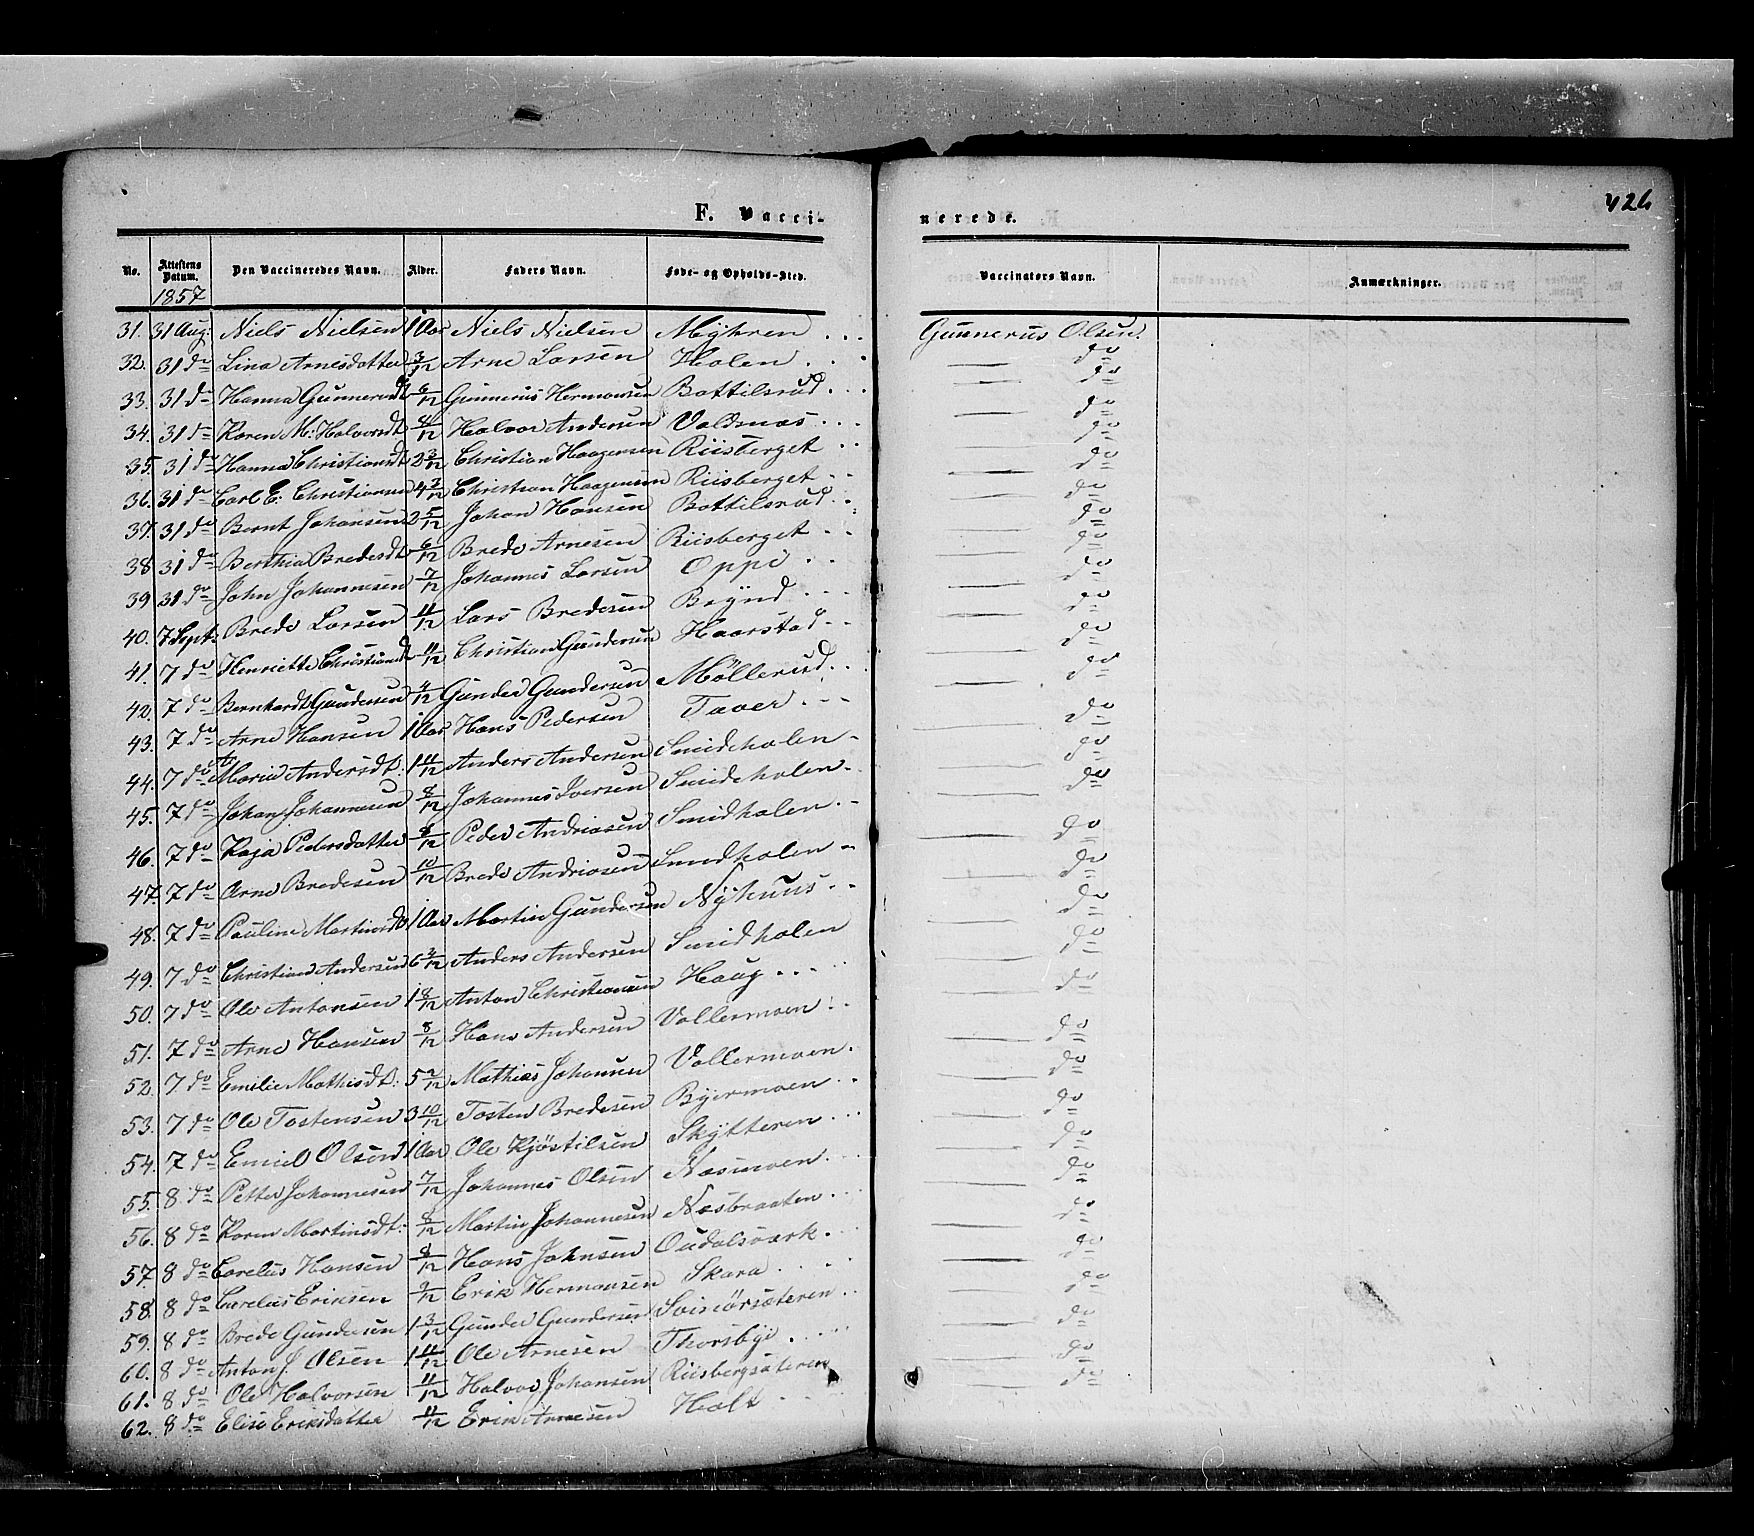 426
F. Vacci- nerede.
No. Attestens Datum. Den Vaccineredes Navn. Alder. Faders Navn. Føde- og Opholds-Sted. Vaccinators Navn. Anmærkninger.
1857
31. 31 Aug: Niels Nielsen 1 Aar Niels Nielsen Myhren Gunnerus Olsen.
32. 31 do Lina Arnesdatter 3/12 Arne Larsen Holen do
33. 31 do Hanna Gunnerusdt 6/12 Gunnerius Hermansen Bottilsrud do
34. 31 do Karen M: Halvorsdt Halvor Andersen Valdsnæs do
35. 31 do Hanna Christiansdt 2 3/12 Christian Haagensen Riisberget do
36. 31 do Carl E. Christiansen 4 3/12 Christian Haagensen Riisberget do
37. 31 do Bernt Johansen 2 5/12 Johan Hansen Bottilsrud do
38 31 do Berthia Bredesdt 6/12 Brede Arnesen Riisberget do
39 31 do John Johannesen 7/12 Johannes Larsen Oppi do
40. 7 Sept: Brede Larsen 11/12 Lars Bredesen Brynd do
41. 7 do Henriette Christiansdt 11/12 Christian Gundersen Haarstad do
42. 7 do Bernhardt Gundersen 4/12 Gunder Gundersen Möllerud do
43. 7 do Arne Hansen 1 Aar Hans Pedersen Taver do
44. 7 do Marie Andersdt: 1 11/12 Anders Andersen Smidholen do
45. 7 do Johan Johannesen 8/12 Johannes Iversen Smidholen do
46. 7 do Kaja Pedersdatter Peder Andriasen Smidholen do
47. 7 do Arne Bredesen 10/12 Brede Andriasen Smidholen do
48. 7 do Pauline Martinsdt 1 Aar Martin Gundersen Nÿhuus do
49. 7 do Christian Andersen 6 3/12 Anders Andersen Smidholen do
50. 7 do Ole Antonsen 1 8/12 Anton Christiansen Haug do
51. 7 do Arne Hansen 8/12 Hans Andersen Vollermoen do
52. 7 do Emilie Mathisdt: 5 2/12 Mathias Johannsen Vollermoen do
53. 7 do Ole Tostensen 3 10/12 Tosten Bredesen Byermoen do
54. 7 do Emiel Olsen 1 Aar Ole Kjøstilsen Skytteren do
55. 8 do Petter Johannesen 7/12 Johannes Olsen Næsmoen do
56. 8 do Karen Martinsdt: 8/12 Martin Johannesen Næsbraaten do
57. 8 do Carelius Hansen Hans Johnsen Oudalsværk do
58. 8 do Carelius Eriksen 9/12 Erik Hermansen Skara do
59. 8 do Brede Gundersen 1 3/12 Gunder Gundersen do
60. 8 do Anton J. Olsen 1 11/12 Ole Arnesen Thorsbye do
61. 8 do Ole Halvorsen 11/12 Halvor Johansen Riisbergsæteren do
62. 8 do Elise Eriksdatter 11/12 Erik Arnesen Holt